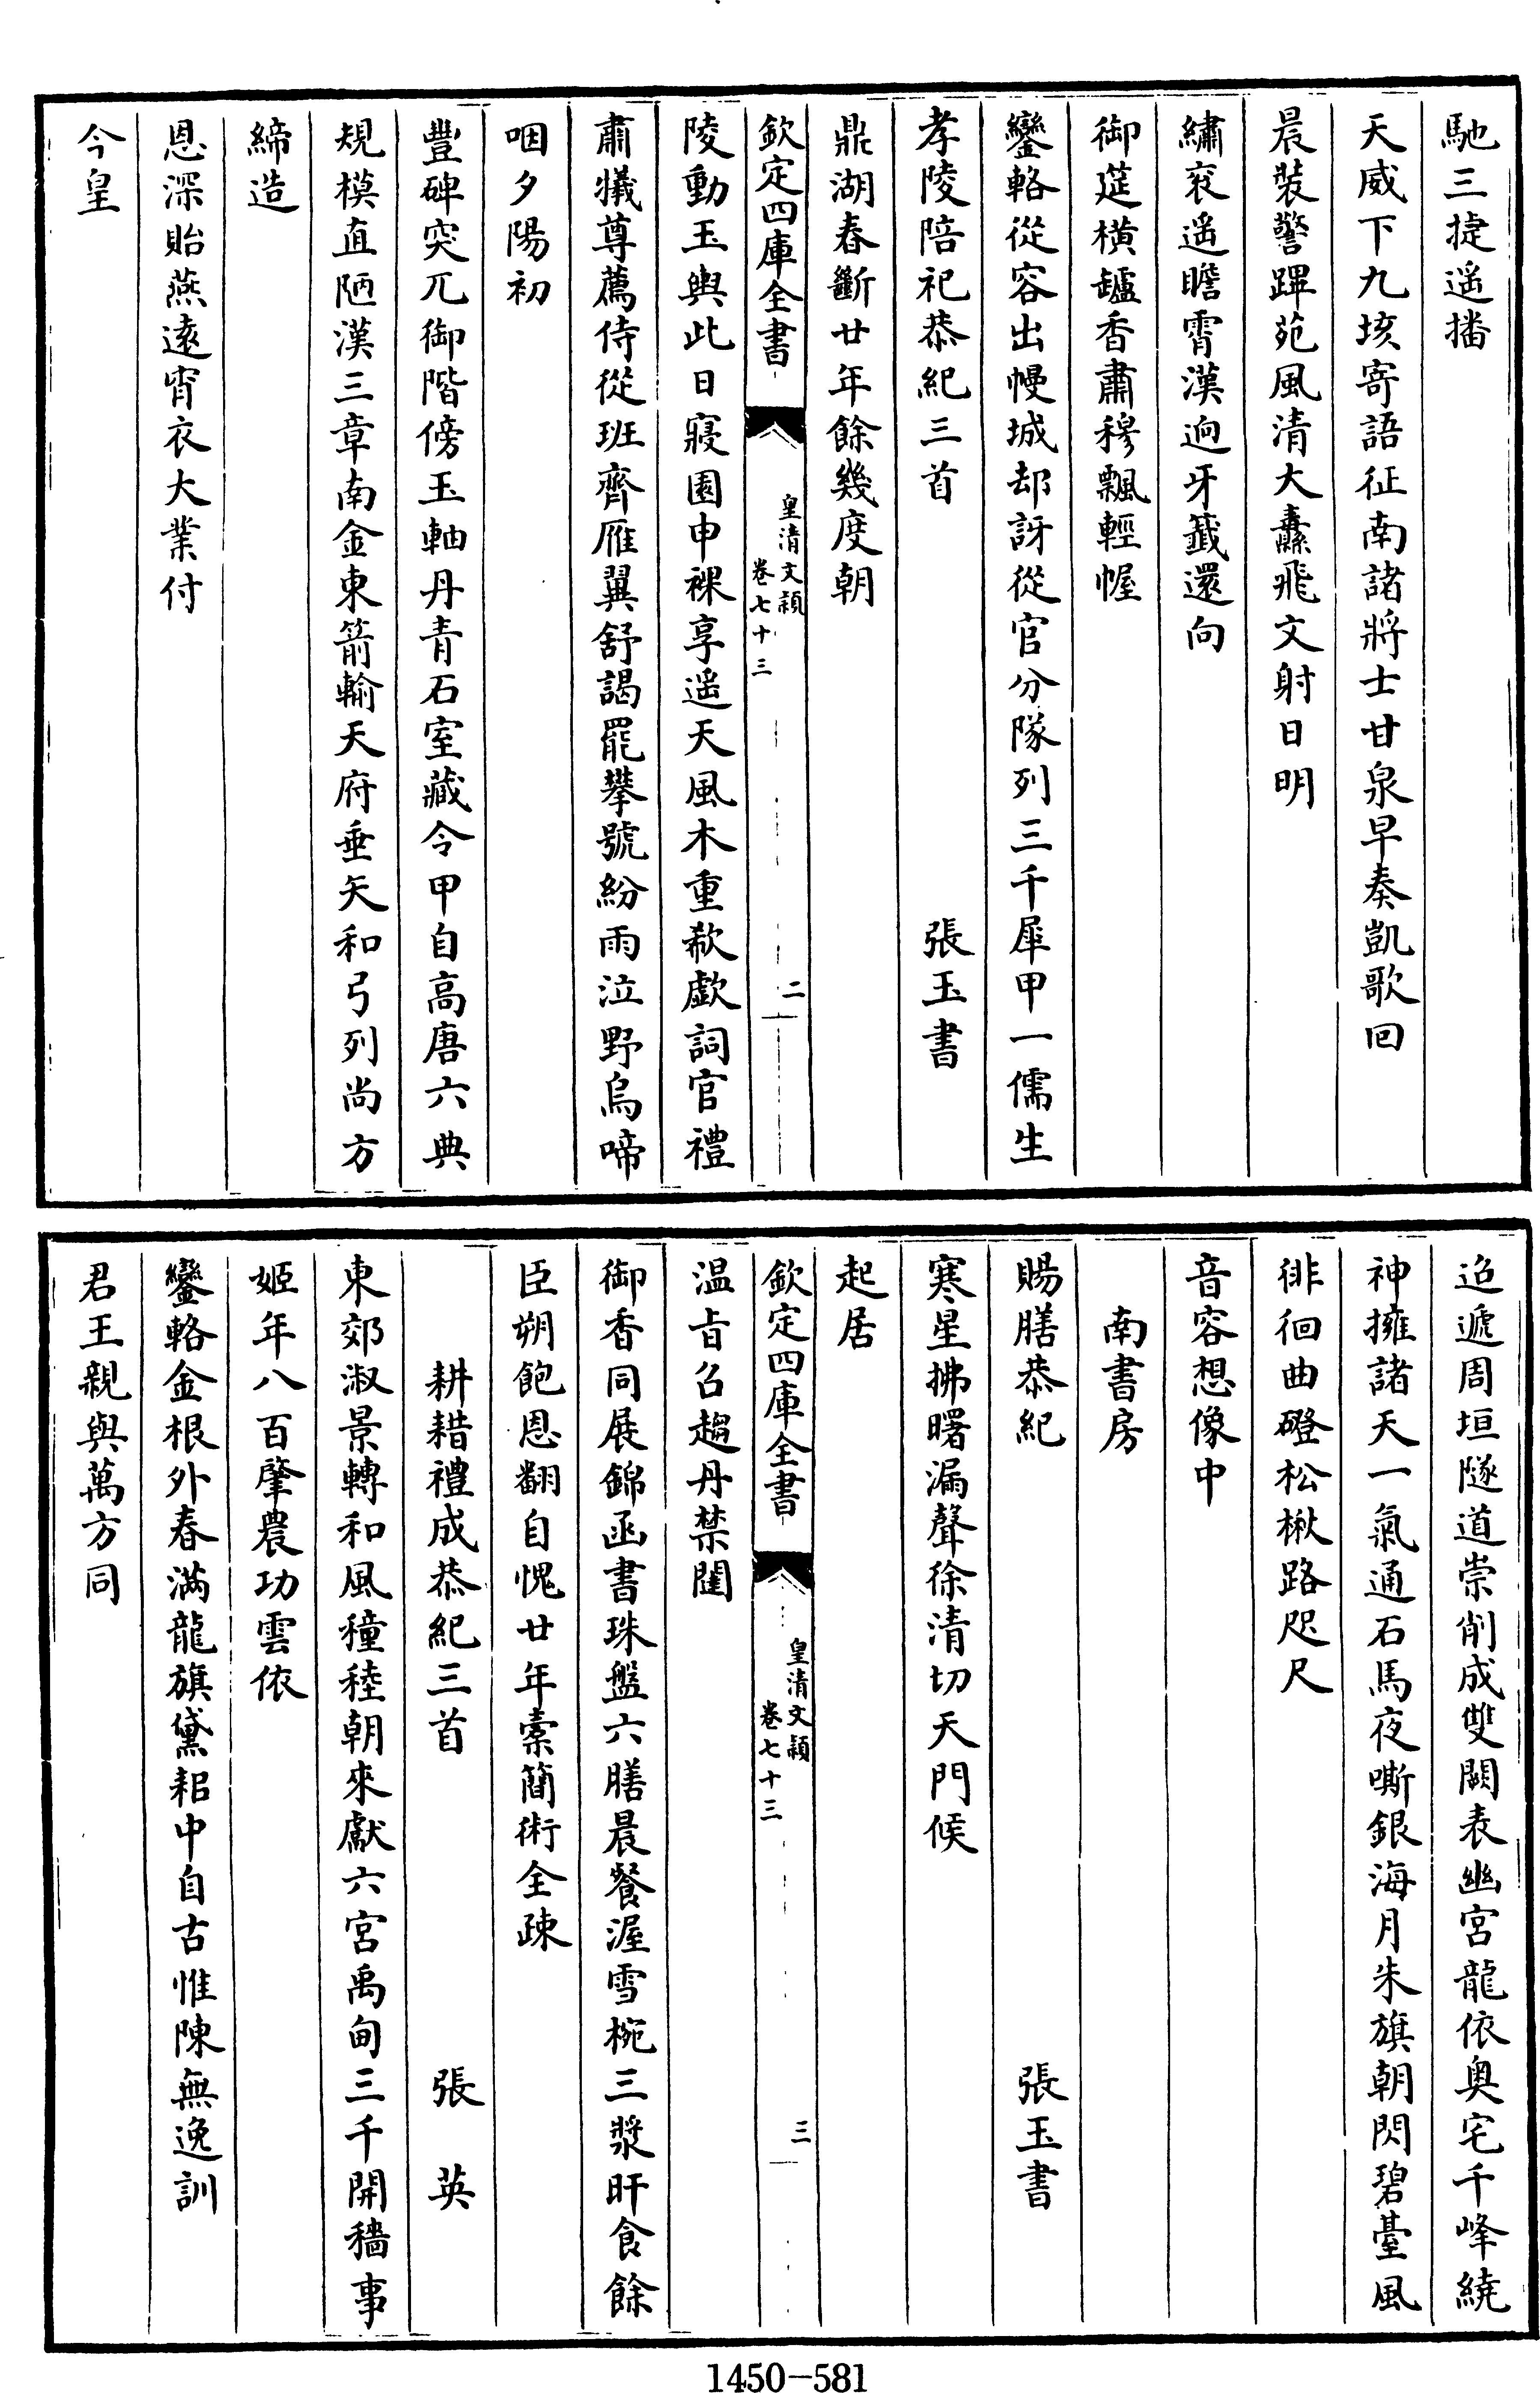 馳三捷遥播
天威下九垓寄語征南諸將士甘泉早奏凱歌回
晨裝警蹕苑風清大纛飛文射日明
繡衮遥瞻霄漢逈牙籤還向
御筵橫罏香肅穆飄輕幄
鑾輅從容出幔城却訝從官分隊列三千犀甲一儒生
孝陵陪祀恭紀三首 張玉書
鼎湖春斷廿年餘幾度朝
欽定四庫全書 皇清文頴 卷七十三 二
陵動玉輿此日寢園申祼享遥天風木重欷歔詞官禮
肅犧尊薦侍從班齊雁翼舒謁罷攀號紛雨泣野烏啼
咽夕陽初
豐碑突兀御階傍玉軸丹青石室藏令甲自高唐六典
規模直陋漢三章南金東箭輸天府垂矢和弓列尚方
締造
恩深貽燕遠宵衣大業付
今皇
迢遞周垣隧道崇削成雙闕表幽宮龍依奥宅千峰繞
神擁諸天一氣通石馬夜嘶銀海月朱旗朝閃碧臺風
徘徊曲磴松楸路咫尺
音容想像中
南書房
賜膳恭紀 張玉書
寒星拂曙漏聲徐清切天門候
起居
欽定四庫全書 皇清文頴 卷七十三 三
温㫖召趨丹禁闥
御香同展錦函書珠盤六膳晨餐渥雪椀三漿旰食餘
臣朔飽恩翻自愧廿年索簡術全疎
耕耤禮成恭紀三首 張英
東郊淑景轉和風穜稑朝來獻六宮禹甸三千開穡事
姬年八百肇農功雲依
鑾輅金根外春滿龍旗黛耜中自古惟陳無逸訓
君王親與萬方同
1450-581